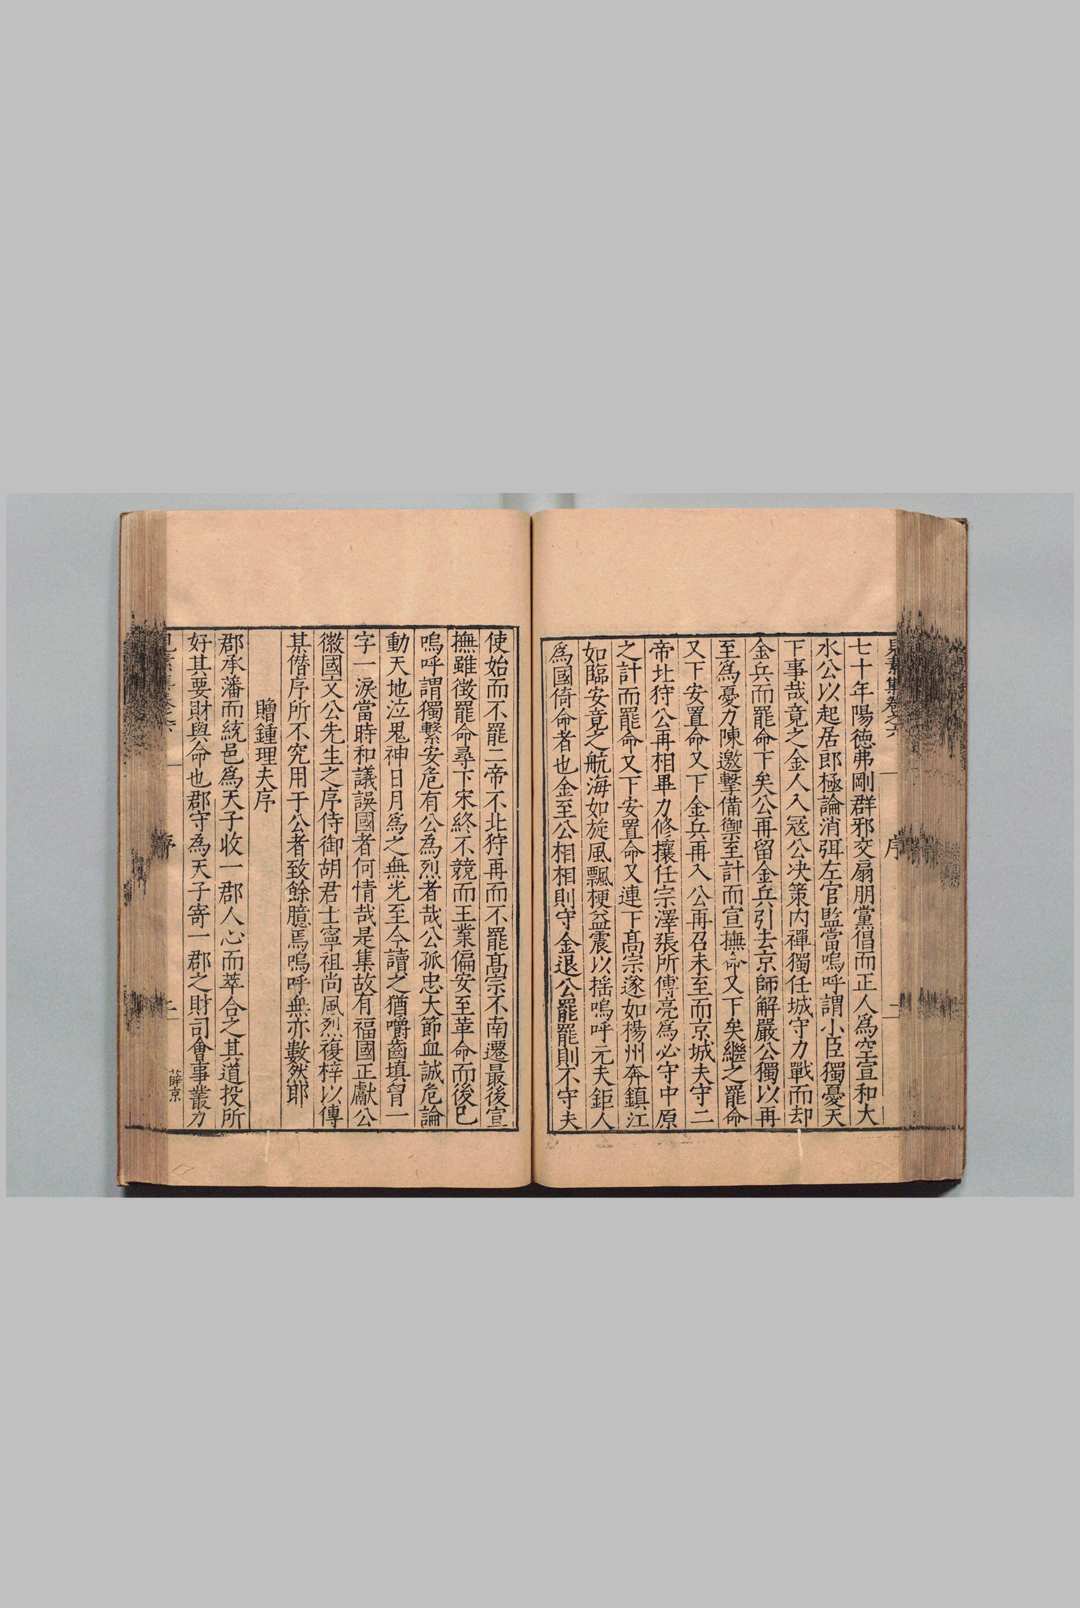 見素集卷之六
序
二
七十年陽德弗剛群邪交扇朋黨倡而正人為空宣和大
水公以起居郎極論消弭左官監當嗚呼謂小臣獨憂天
下事哉竟之金人入寇公决策内禪獨任城守力戰而却
金兵而罷命下矣公再留金兵引去京師解嚴公獨以再
至爲憂力陳邀擊備禦至計而宣撫命又下矣繼之罷命
又下安置命又下金兵再入公再召未至而京城失守二
帝北狩公再相畢力修攘任宗澤張所傅亮爲必守中原
之計而罷命又下安置命又連下髙宗遂如揚州奔鎮江
如臨安竟之航海如旋風飄梗益震以揺嗚呼元夫鉅人
爲國倚命者也金至公相相則守金退公罷罷則不守夫
使始而不罷二帝不北狩再而不罷髙宗不南遷最後宣
撫雖徴罷命尋下宋終不競而王業偏安至革命而後已
嗚呼謂獨繫安危有公為烈者哉公孤忠大節血誠危論
動天地泣鬼神日月爲之無光至今讀之猶嚼齒填胷一
字一淚當時和議誤國者何情哉是集故有福國正獻公
徽國文公先生之序侍御胡君士寧祖尚風烈複梓以傳
其僭序所不究用于公者致餘臆焉嗚呼無亦數然耶
贈鍾理夫序
郡承藩而統邑爲天子收一郡人心而萃合之其道投所
好其要財與命也郡守為天子寄一郡之財司會事叢力
薛京
序